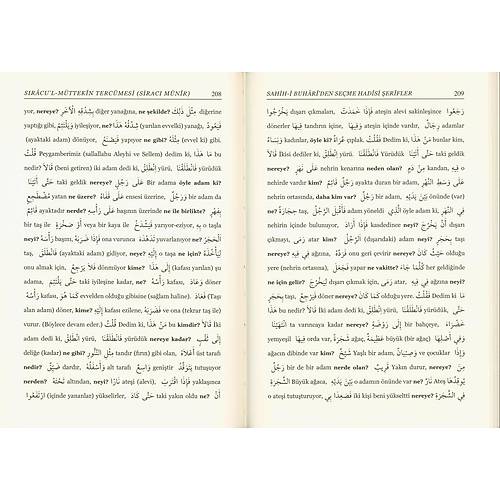 SIRÂCU'L-MÜTTEKÎN TERCÜMESİ (SİRACI MÜNİR) 208
yor, nereye? بِشِدْقِهِ الْآخَرِ diğer yanağına, ne şekilde? مِثْلَ ذٰلِكَ diğerine
yaptığı gibi, وَيَلْتَئِمُ iyileşiyor, ne? شِدْقُهُ هٰذَا bu (yarılan evvelki) yanağı, فَيَعُودُ
(ayaktaki adam) dönüyor, فَيَصْنَعُ ve yapıyor, neyi? مِثْلَهُ onun gibisini, قُلْتُ
Peygamberimiz (sallallahu Aleyhi ve Sellem) dedim ki, مَا هٰذَا bu nedir?
قَالَا (beni getiren) iki adam dedi ki, انْطَلِقْ yürü, فَانْطَلَقْنَا Yürüdük حَتَّى أَتَيْنَا
taki geldik nereye? عَلَى رَجُلٍ Bir adama öyle adam ki? مُضْطَجِعٍ
yatan ne üzere? عَلَى قَفَاهُ ensesi üzerine, وَرَجُلٌ bir adam da
قَائِمٌ ayakta nerede? عَلَى رَأْسِهِ başının üzerinde ne ile birlikte? بِفِهْرٍ
bir taş ile أَوْ صَخْرَةٍ veya bir kaya ile فَيَشْدَخُ yarıyor-eziyor, بِهِ o taşla
neyi? رَأْسَهُ başını فَإِذَا ضَرَبَهُ ona vurunca تَدَهْدَهَ yuvarlanıyor ne? الْحَجَرُ
taş, فَانْطَلَقَ (ayaktaki adam) gidiyor, nereye? إِلَيْهِ o taşa ne için? لِيَأْخُذَهُ
onu almak için, فَلَا يَرْجِعُ dönmüyor kime? إِلَى هٰذَا (kafası yarılan) şu
adama, حَتَّى يَلْتَئِمَ taki iyileşine kadar, ne? رَأْسُهُ kafası, وَعَادَ döner
رَأْسُهُ kafası, كَمَا هُوَ evvelden olduğu gibisine (sağlam haline). فَعَادَ (Taşı
alan adam) döner, kime? إِلَيْهِ ona (kafası ezilene) فَضَرَبَهُ ona (tekrar taşı)
vurur. (Böylece devam eder.) قُلْتُ Dedim ki, مَنْ هٰذَا bu kimdir? قَالَا
iki adam dedi ki, انْطَلِقْ yürü, فَانْطَلَقْنَا Yürüdük nereye kadar? إِلَى ثَقْبٍ
deliğe (kadar) ne gibi? مِثْلِ التَّنُّورِ tandır (fırın) gibi olan, أَعْلَاهُ üst tarafı
nedir? ضَيِّقٌ dardır, وَأَسْفَلُهُ alt tarafı وَاسِعٌ geniştir يَتَوَقَّدُ tutuşuyor
nerden? تَحْتَهُ altından, neyi? نَارًا ateşi (alevi), فَإِذَا اقْتَرَبَ yaklaşınca
ارْتَفَعُوا (içinde yananlar) yükselirler, حَتَّى كَادَ taki yakın oldu ne? أَنْ
SAHİH-İ BUHARİ'DEN SEÇME HADİSİ ŞERİFLER 209
يَخْرُجُوا dışarı çıkmaları, فَإِذَا خَمَدَتْ ateşin alevi sakinleşince رَجَعُوا
dönerler فِيهَا tandırın içine, وَفِيهَا ateşin içinde vardır, رِجَالٌ adamlar
وَنِسَاءٌ kadınlar, öyle ki? عُرَاةٌ çıplaktırlar, فَقُلْتُ Dedim ki, مَنْ هٰذَا bu kim?
قَالَا İkisi dediler ki, انْطَلِقْ yürü, فَانْطَلَقْنَا Yürüdük حَتَّى أَتَيْنَا taki geldik
nereye? عَلَى نَهَرٍ nehrin kenarına neden olan? مِنْ دَمٍ kandan, فِيهِ o
nehirde vardır kim? رَجُلٌ قَائِمٌ ayakta duran bir adam, عَلَى وَسَطِ النَّهَرِ
nehrin ortasında, daha kim var? رَجُلٌ bir adam بَيْنَ يَدَيْهِ onun önünde
vardır, ne? حِجَارَةٌ taş, فَأَقْبَلَ الرَّجُلُ adam yöneldi الَّذِي öyle adam ki, فِي النَّهَرِ
nehrin içinde bulunuyor, فَإِذَا أَرَادَ kasdedince neyi? أَنْ يَخْرُجَ dışarı
çıkmayı, رَمَى atar kim? الرَّجُلُ (dışarıdaki) adam neyi? بِحَجَرٍ bir
taşı, nereye? فِي فِيهِ ağzına, فَرَدَّهُ onu geri çevirir nereye? حَيْثُ كَانَ olduğu
yere (nehrin ortasına), فَجَعَلَ yapar ne vakitte? كُلَّمَا جَاءَ her geldiğinde
ne için gelir? لِيَخْرُجَ dışarı çıkmak için geldiğinde, رَمَى atar, nereye?
فِي فِيهِ ağzına neyi? بِحَجَرٍ taşı, فَيَرْجِعُ döner كَمَا كَانَ Olduğu yere. فَقُلْتُ Dedim ki,
مَا هٰذَا bu nedir? قَالَا dediler ki, انْطَلِقْ yürü, فَانْطَلَقْنَا Yürüdük حَتَّى
انْتَهَيْنَا ta varıncaya kadar nereye? إِلَى رَوْضَةٍ bir bahçeye, خَضْرَاءَ
yemyeşil فِيهَا orda var, شَجَرَةٌ عَظِيمَةٌ büyük bir ağaç, وَفِي أَصْلِهَا (o büyük)
ağacın dibinde var kim? شَيْخٌ Yaşlı bir adam, وَصِبْيَانٌ ve çocuklar وَإِذَا
رَجُلٌ bir de bir adam nerde olan? قَرِيبٌ Yakın durur, nereye? مِنَ الشَّجَرَةِ
Büyük ağaca, بَيْنَ يَدَيْهِ o adamın önünde var ne? نَارٌ Ateş يُوقِدُهَا
o ateşi tutuşturuyor, فَصَعِدَا بِي iki kişi beni yükseltti nereye? فِي الشَّجَرَةِ